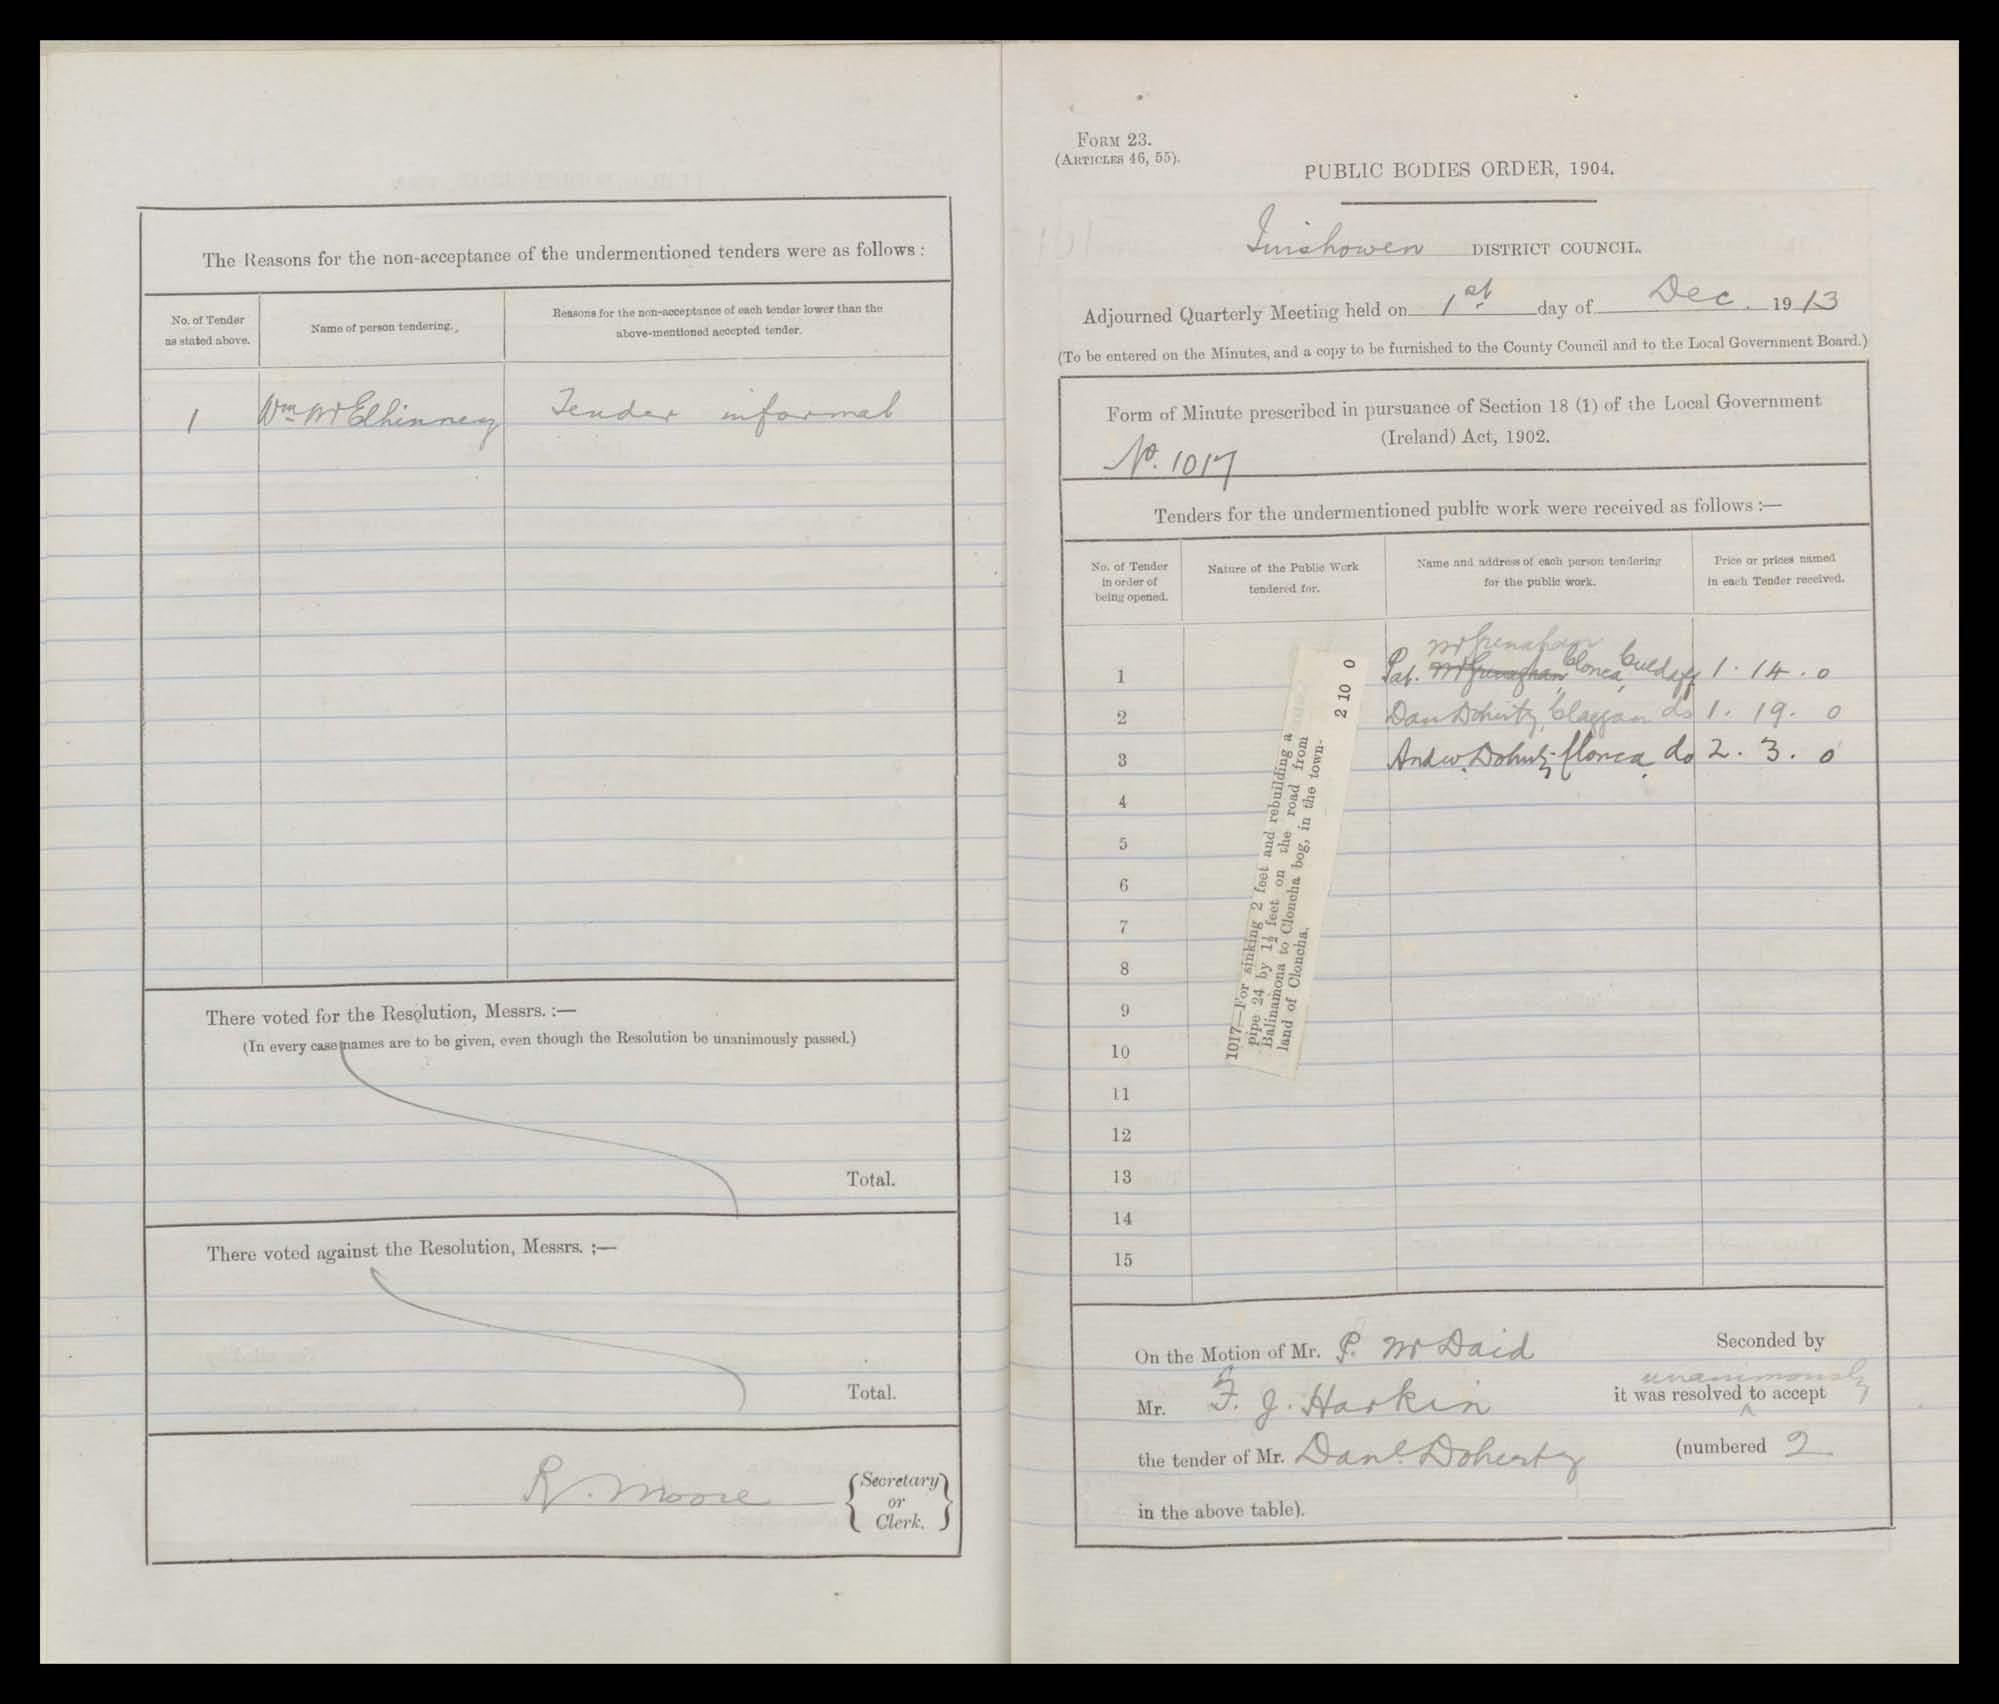 The Reasons for the non-acceptance of the undermentioned tenders were as follows :
No. of Tender
as stated above.
Name of person tendering.
Reasons for the non-acceptance of each tender lower than the
above-mentioned accepted tender.
1 Wm McElhinney Tender informal
There voted for the Resolution, Messrs. :—
(In every case names are to be given, even though the Resolution be unanimously passed.)
Total.
There voted against the Resolution, Messrs. :—
Total.
R. Moore
{Secretary
or
Clerk.}
FORM 23.
(ARTICLES 46, 55).
PUBLIC BODIES ORDER, 1904.
Inishowen DISTRICT COUNCIL.
Adjourned Quarterly Meeting held on 1st day of Dec. 1913
(To be entered on the Minutes, and a copy to be furnished to the County Council and to the Local Government Board.)
Form of Minute prescribed in pursuance of Section 18 (1) of the Local Government
(Ireland) Act, 1902.
No. 1017
Tenders for the undermentioned public work were received as follows :—
No. of Tender
in order of
being opened.
Nature of the Public Work
tendered for.
Name and address of each person tendering
for the public work.
Price or prices named
in each Tender received.
1017—For sinking 2 feet and rebuilding a
pipe 24 by 1½ feet on the road from
Balinamona to Cloncha bog, in the town-
land of Cloncha. 2 10 0
1 Pat. Clonca, Culdaff 1 . 14 . 0
2 Dan Doherty, Claggan do 1 . 19 . 0
3 Andw. Doherty Clonca do 2 . 3 . 0
4
5
6
7
8
9
10
11
12
13
14
15
On the Motion of Mr. P. McDaid Seconded by
unanimously
Mr. F. J. Harkin it was resolved ^ to accept
the tender of Mr. Danl. Doherty (numbered 2
in the above table).